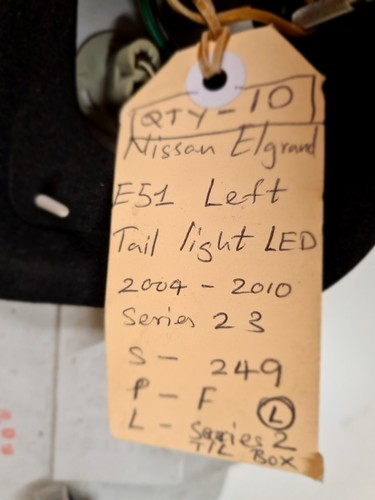 QTY - 10
Nissan Elgrand
E51 Left
Tail light LED
2004 - 2010
Series 2 3
S - 249
P - F
L
L - Series 2
T/L Box